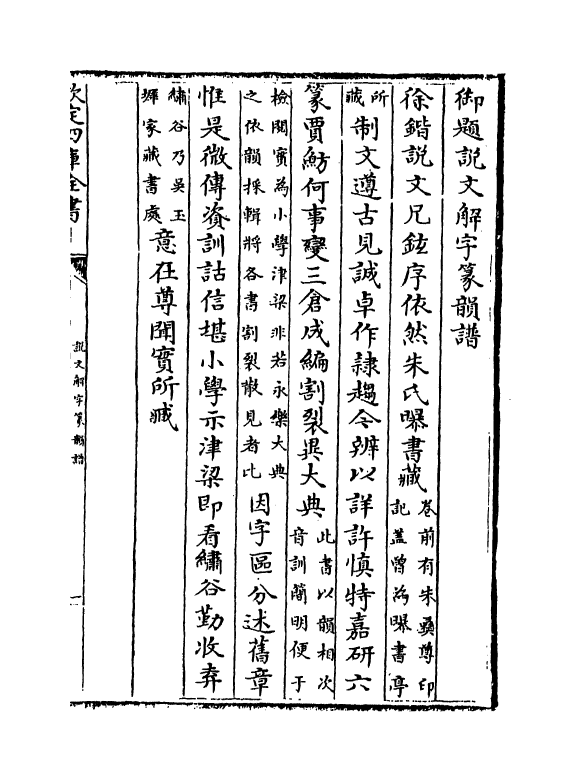 御題說文解字篆韻譜
徐鍇說文兄鉉序依然朱氏曝書藏
卷前有朱彝尊印
記蓋曾為曝書亭
所
藏
制文遵古見誠卓作隸趨今辨以詳許慎特嘉研六
篆賈魴何事變三倉成編割裂異大典
此書以韻相次
音訓簡明便于
檢閱實為小學津梁非若永樂大典
之依韻採輯將各書割裂散見者比
因字區分述舊章
惟是微傳資訓詁信堪小學示津梁即看繡谷勤收弆
繡谷乃吳玉
墀家藏書處
意在尊聞實所臧
欽定四庫全書
說文解字篆韻譜
一